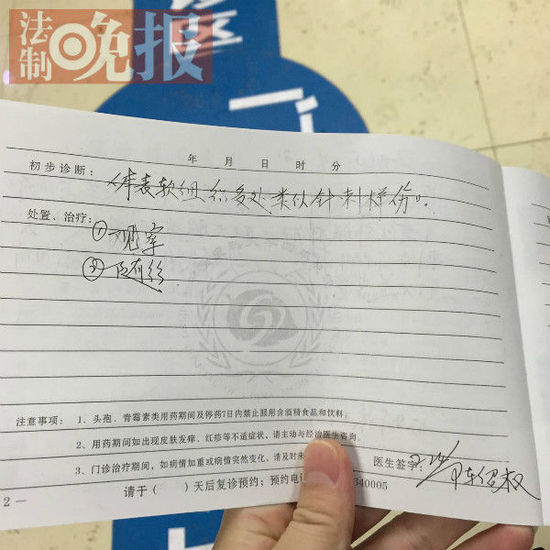 法制晚报
年 月 日 时 分
初步诊断：体表软组织多处类似针刺样伤。
处置、治疗：
①观察
②随诊
注意事项： 1、头孢、青霉素类用药期间及停药7日内禁止服用含酒精食品和饮料。
2、用药期间如出现皮肤发痒、红疹等不适症状，请主动与经治医生咨询。
3、门诊治疗期间，如病情加重或病情突然变化，请及时来
医生签字：
请于（ ）天后复诊预约；预约电话 40005
2 —